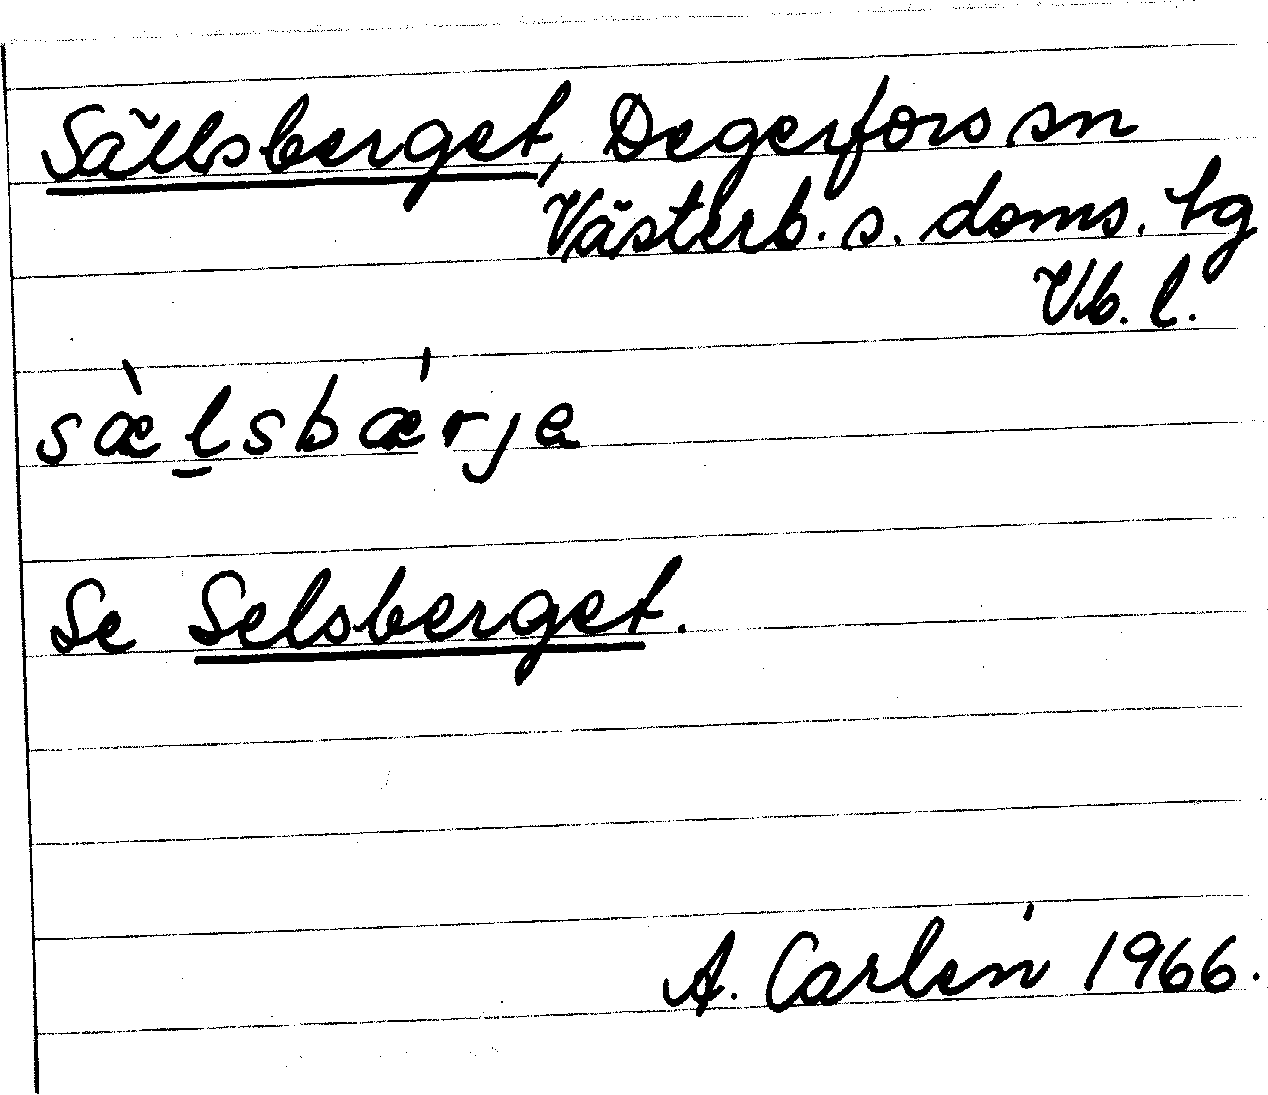 Sällsberget, Degerfors sn
Västerb. s. doms. tg
Vb. l.
sæ̀l̲sbǽrja
Se Selsberget.
A. Carlén 1966.